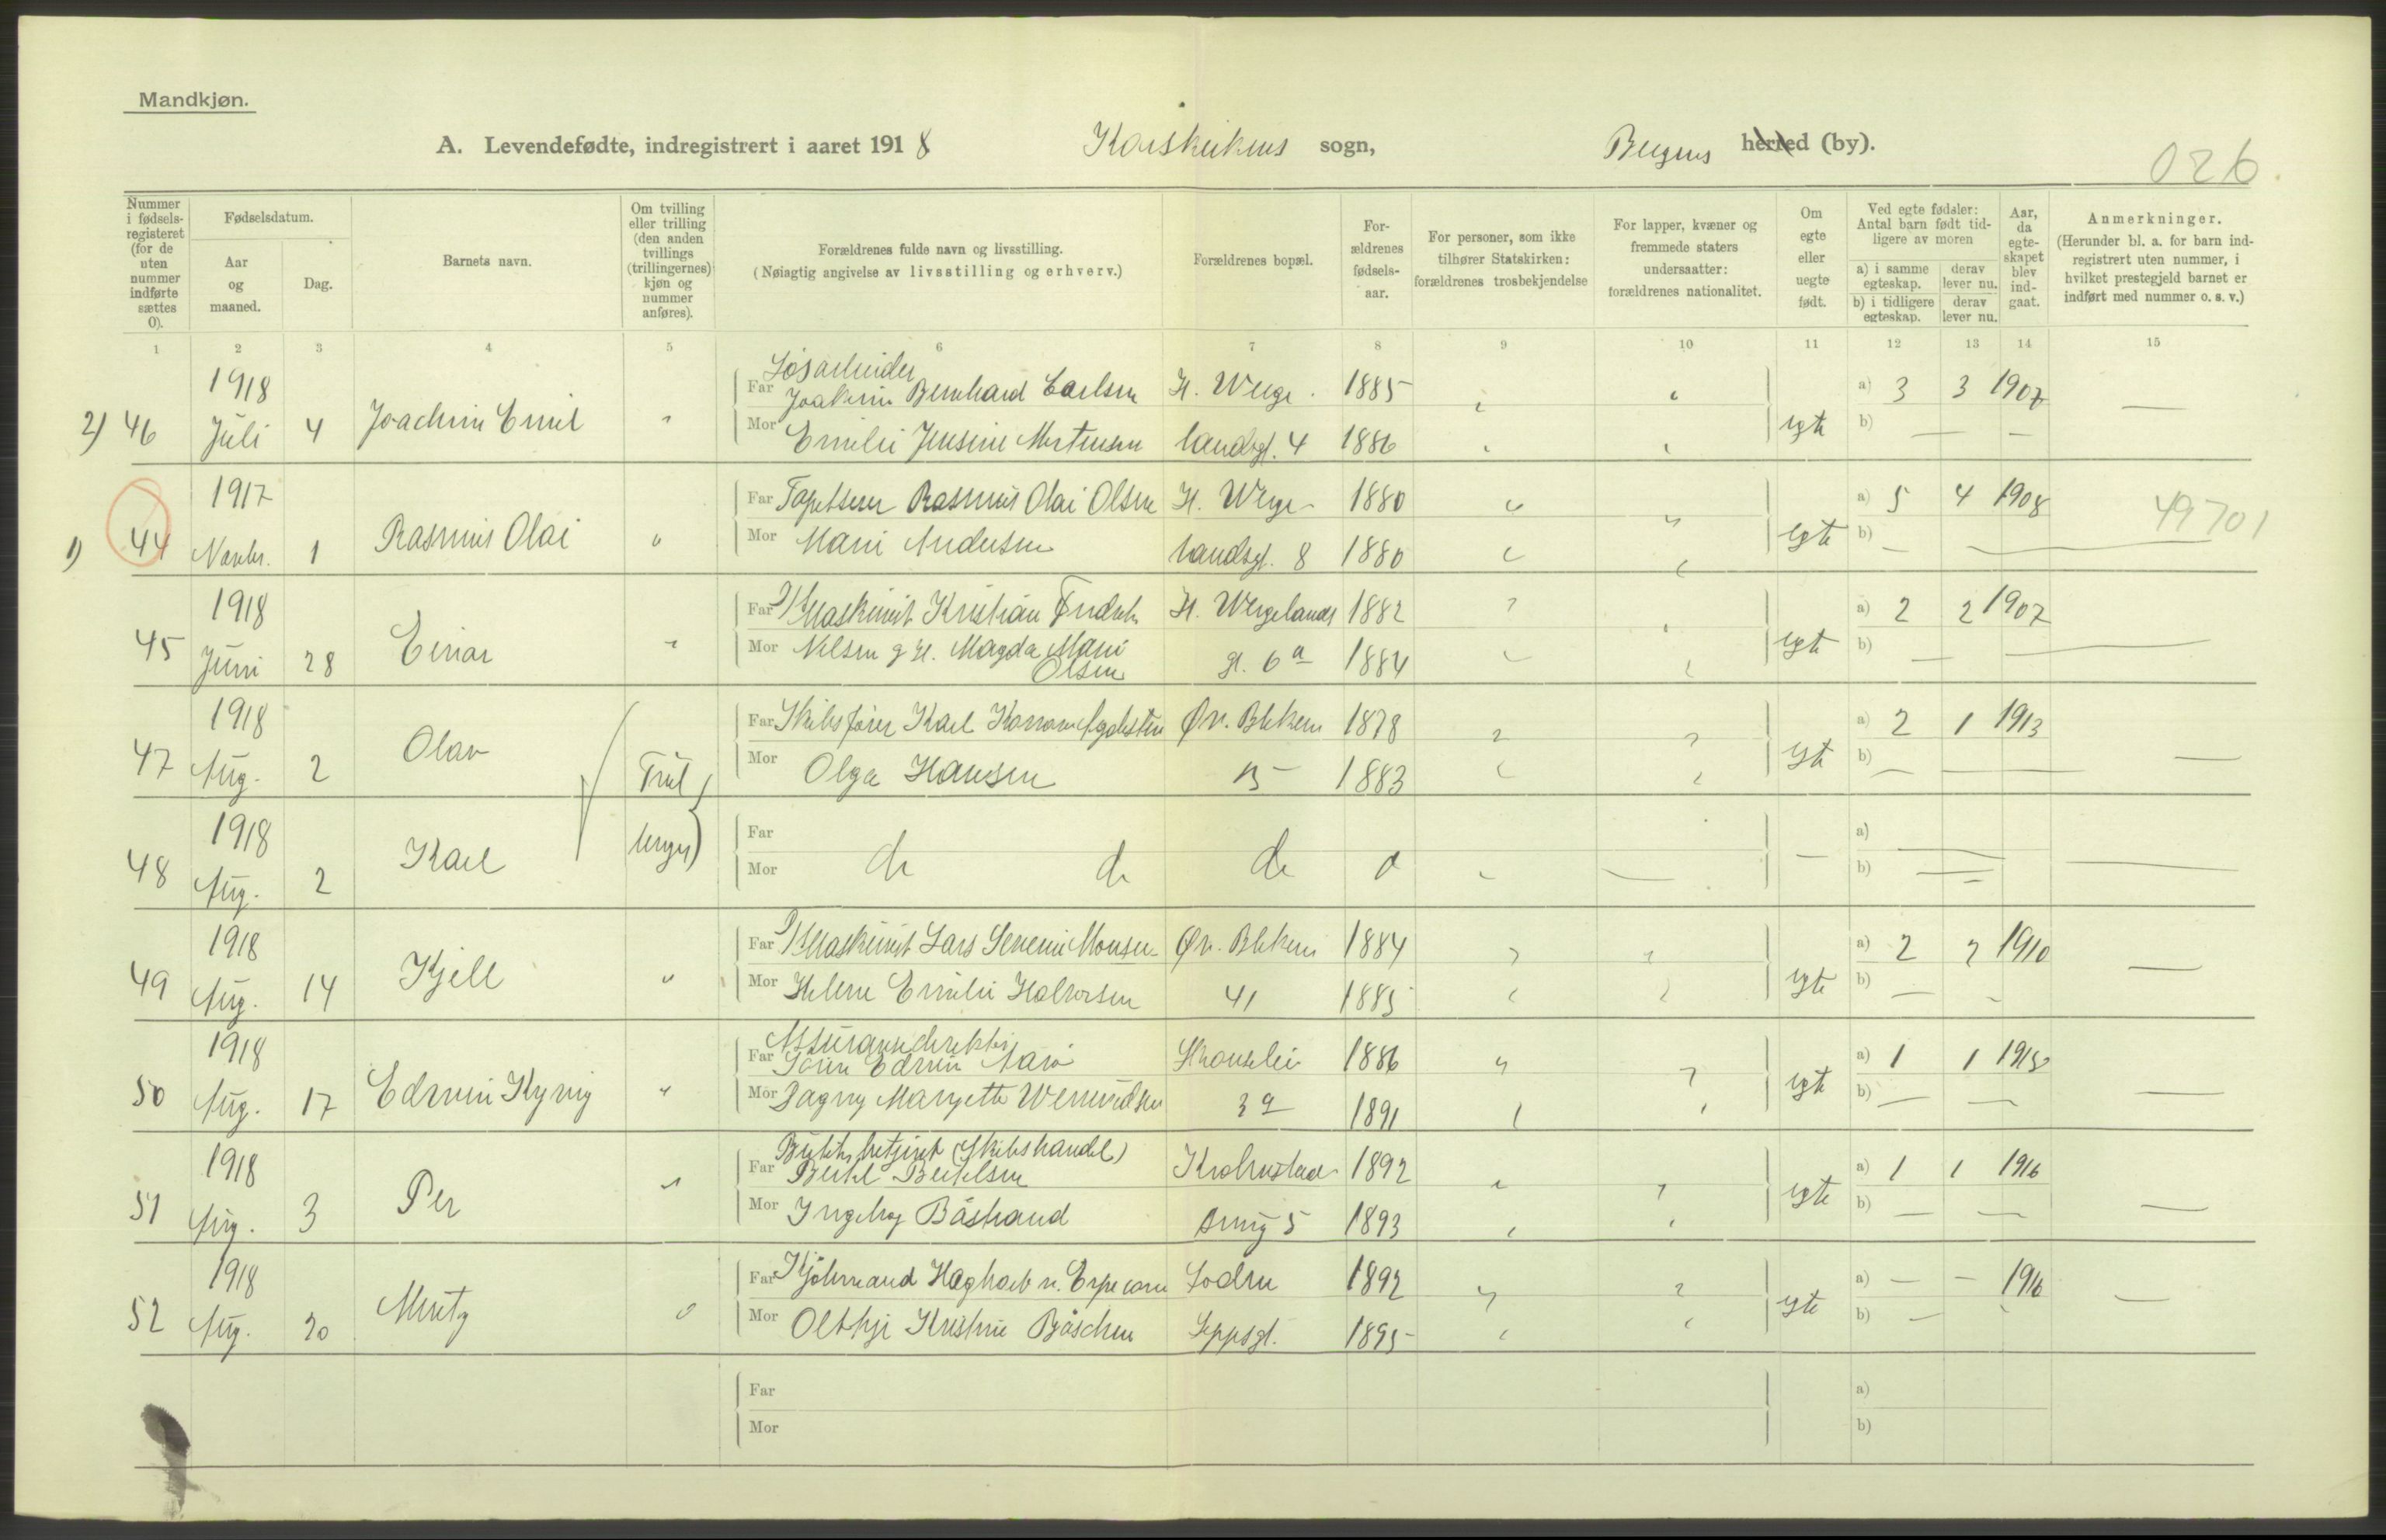 Mandkjøn.
A. Levendefødte, indregistrert i aaret 1918 Korskirkens sogn, Bergens herred (by).
026
Nummer i fødsels-registeret (for de uten nummer indførte sættes 0).
Fødselsdatum.
Aar og maaned.
Dag.
Barnets navn.
Om tvilling eller trilling (den anden tvillings (trillingernes) kjøn og nummer anføres).
Forældrenes fulde navn og livsstilling.
(Nøiagtig angivelse av livsstilling og erhverv.)
Forældrenes bopæl.
For-ældrenes fødsels-aar.
For personer, som ikke tilhører Statskirken: forældrenes trosbekjendelse
For lapper, kvæner og fremmede staters undersaatter: forældrenes nationalitet.
Om egte eller uegte født.
Ved egte fødsler: Antal barn født tid-ligere av moren
a) i samme egteskap. derav lever nu.
b) i tidligere egteskap. derav lever nu.
Aar, da egte-skapet blev ind-gaat.
Anmerkninger.
(Herunder bl. a. for barn ind-registrert uten nummer, i hvilket prestegjeld barnet er indført med nummer o. s. v.)
1 2 3 4 5 6 7 8 9 10 11 12 13 14 15
2) 46 1918 Juli 4 Joachim Emil " Far Løsarbeider Joakim Bernhard Carlsen H. Werge- 1885 " " a) 3 3 1907 —
Mor Emilie Jensine Mortensen landsgt. 4 1886 " " egte b) — —
1) 44 1917 Novbr. 1 Rasmus Olai " Far Tapetserer Rasmus Olai Olsen H. Werge- 1880 " " a) 5 4 1908 49701
Mor Marie Andersen landsgt. 8 1880 " " egte b) — —
45 1918 Juni 28 Einar " Far Maskinist Kristian Fredrik H. Wergelands 1882 " " a) 2 2 1907
Mor Nilsen g. H. Magda Marie Olsen gt. 6a 1884 " " egte b) — —
47 1918 Aug. 2 Olav Tvil Far Skibsfører Karl Agdesten Øv. Blekevn 1878 " " a) 2 1 1913
Mor Olga Hansen 15 1883 " " egte b) — — —
48 1918 Aug. 2 Karl linger Far a)
Mor do do do d " — — b) — —
49 1918 Aug. 14 Kjell " Far Maskinist Lars Severin Monsen Øv. Blekevn 1884 " " a) 2 2 1910
Mor Helene Emilie Halvorsen 41 1885 " " egte b) — — —
50 1918 Aug. 17 Edvin Kyrvig " Far Assurancedirektør Edvin 1886 " " a) 1 1 1915
Mor Dagny Margethe 3a 1891 " " egte b) — — —
51 1918 Aug. 3 Per " Far Butikbetjent (Skibshandel) Bertel Bertelsen Kalvedal- 1892 " " a) 1 1 1916
Mor Ingeborg Båstrand 5 1893 " " egte b) — — —
52 1918 Aug. 20 Mentz " Far Kjøbmand v. Erpecom Lodin 1892 " " a) — — 1916
Mor Kristine Bøschen Leppsgt. 1895 " " egte b) — —
Far a)
Mor b)